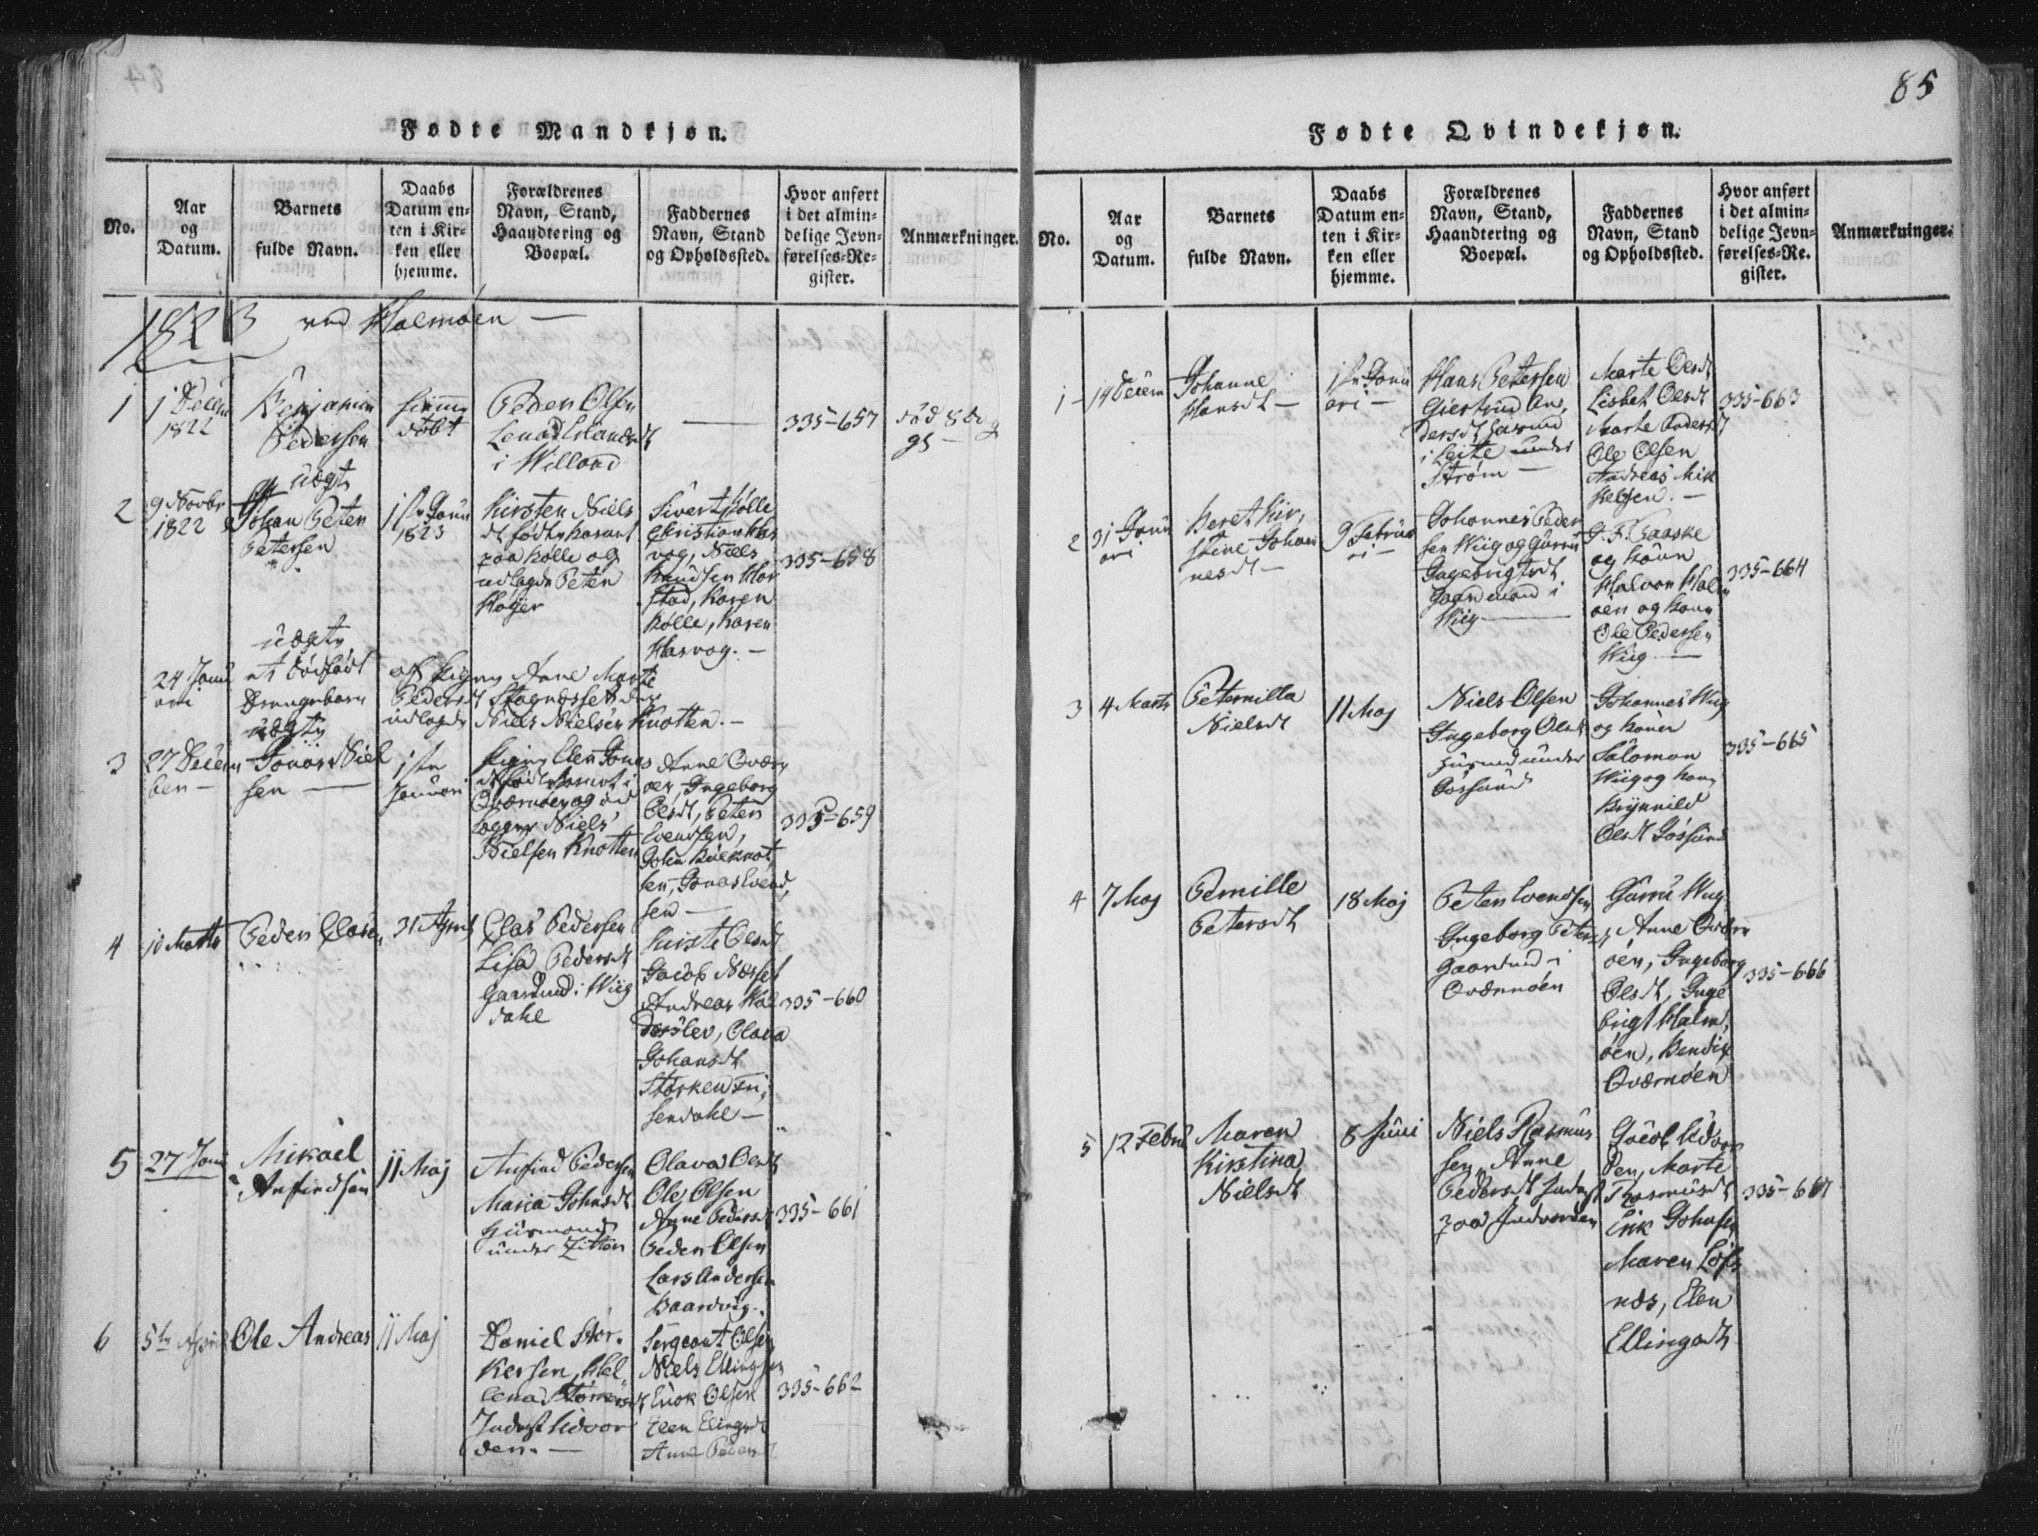 85
Fødte Mandkjøn.
No.
Aar
og
Datum.
Barnets
fulde Navn.
Daabs
Datum en-
ten i Kir-
ken eller
hjemme.
Forældrenes
Navn, Stand,
Haandtering og
Boepæl.
Faddernes
Navn, Stand
og Opholdssted.
Hvor anført
i det almin-
delige Jevn-
førelses-Re-
gister.
Anmærkninger.
1823 ved Halmöen —
1
1 Decem
1822
Benjamin
Pedersen
hjemme
döbt
Peder Olsen
i Willand
335-657
död 8 do
gl —
2
9 Novbr
1822
uægte
Johan Peter
Petersen
1ste Janu
1823
Kirsten Niels
paa Kølle og
udlagde Peter
Høyer
Sivert Kølle
Christian Has
vog, Niels
Knudsen Hor
stad, Karen
Kølle, Karen
Hasvog. —
335-658
24 Janu
ari
uægte
et dödfödt
Drengebarn
af Pigen Anne Marte
Pedersdt Stagnæsset
udlagde Niels Nielsen Knotten. —
3
27 Decem
ber —
uægte
Jonas Niel
sen —
1ste
Januari
Pigen Elen Jonas
Qværnöen og ud
lagde Niels
Nielsen Knotten
Anne Qværn
öen, Ingeborg
Olsdt, Peter
Evendsen,
sen, Jonas Evend,
sen —
335-659
4
10 Marts
Peder Clasen
31 April
Clas Pedersen
Lisa Pedersdt
Gaardmd i Wiig
dahl
Kirste Olsdt
Jacob Næsset
Andreas Hal
derslev, Olava
Johansdt
Størker Eri
sendahl —
335-660
5
27 Janu
Mikael
Anfindsen
11 Maj
Anfind Pedersen
Maria Johnsdt
Huusmand
under Zitter
Olava Olsdt
Ole Olsen
Anne Pedersdt
Peder Olsen
Lars Andersen
Baardvig.
335-661
6
5te April
Ole Andreas
11 Maj
Daniel Stör.
kersen, Hel
lena
Inderst Udvor
den. —
Sergeant Olsen
Niels Ellingsen
Erik Olsen
Elen Elingsdt
Anne Peders
335-662
Fødte Qvindekjøn.
No.
Aar
og
Datum.
Barnets
fulde Navn.
Daabs
Datum en-
ten i Kir-
ken eller
hjemme.
Forældrenes
Navn, Stand,
Haandtering og
Boepæl.
Faddernes
Navn, Stand
og Opholdssted.
Hvor anført
i det almin-
delige Jevn-
førelses-Re-
gister.
Anmærkninger.
1
14 Decem
Johanne
Hansdt —
1ste Janu
ari —
Hans Petersen
Giertrud An,
dersdt
i Leite under
Ström —
Marte Olsdt
Lisbet Olsdt
Marte Pedersdt
Ole Olsen
Andreas Mik
kelsen. —
335-663
2
31 Janu
ari
Beret Kir,
stine Johan
nesdt —
9 Februa
ri —
Johannes Peder
sen Wiig og Gurru
Ingebrigtsdt
Gaardmand i
Wiig —
og Kone
Halvor Halm
öen og Kone
Ole Pedersen
Wiig —
335-664
3
4 Marts
Peternilla
Nielsdt
11 Maj
Niels Olsen
Ingeborg Olsdt
Husmd under
Gössund
Johannes Wiig
og Kone
Salomon
Wiig og Kone
Brynnild
Olsdt Gössund
335-665
4
7 Maj
Pernille
Petersdt
18 Maj
Peter Evendsen
Ingeborg Peters
Gaardmd i
Qværnöen
Gurru Wiig
Anne Qværn
öen, Ingeborg
Olsdt, Inge
brigt Halm,
öen, Bendix
Qværnöen
335-666
5
12 Febru
Maren
Kirstina
Nielsdt
8 Juni
Niels Rasmus
sen, Anne
Pedersdt Inderst
paa Indvorden
Jacob Udvor
den, Marte
Rasmusdt
Erik Johnsen
Maren Löfs
næs, Elen
Ellingsdt
335-667